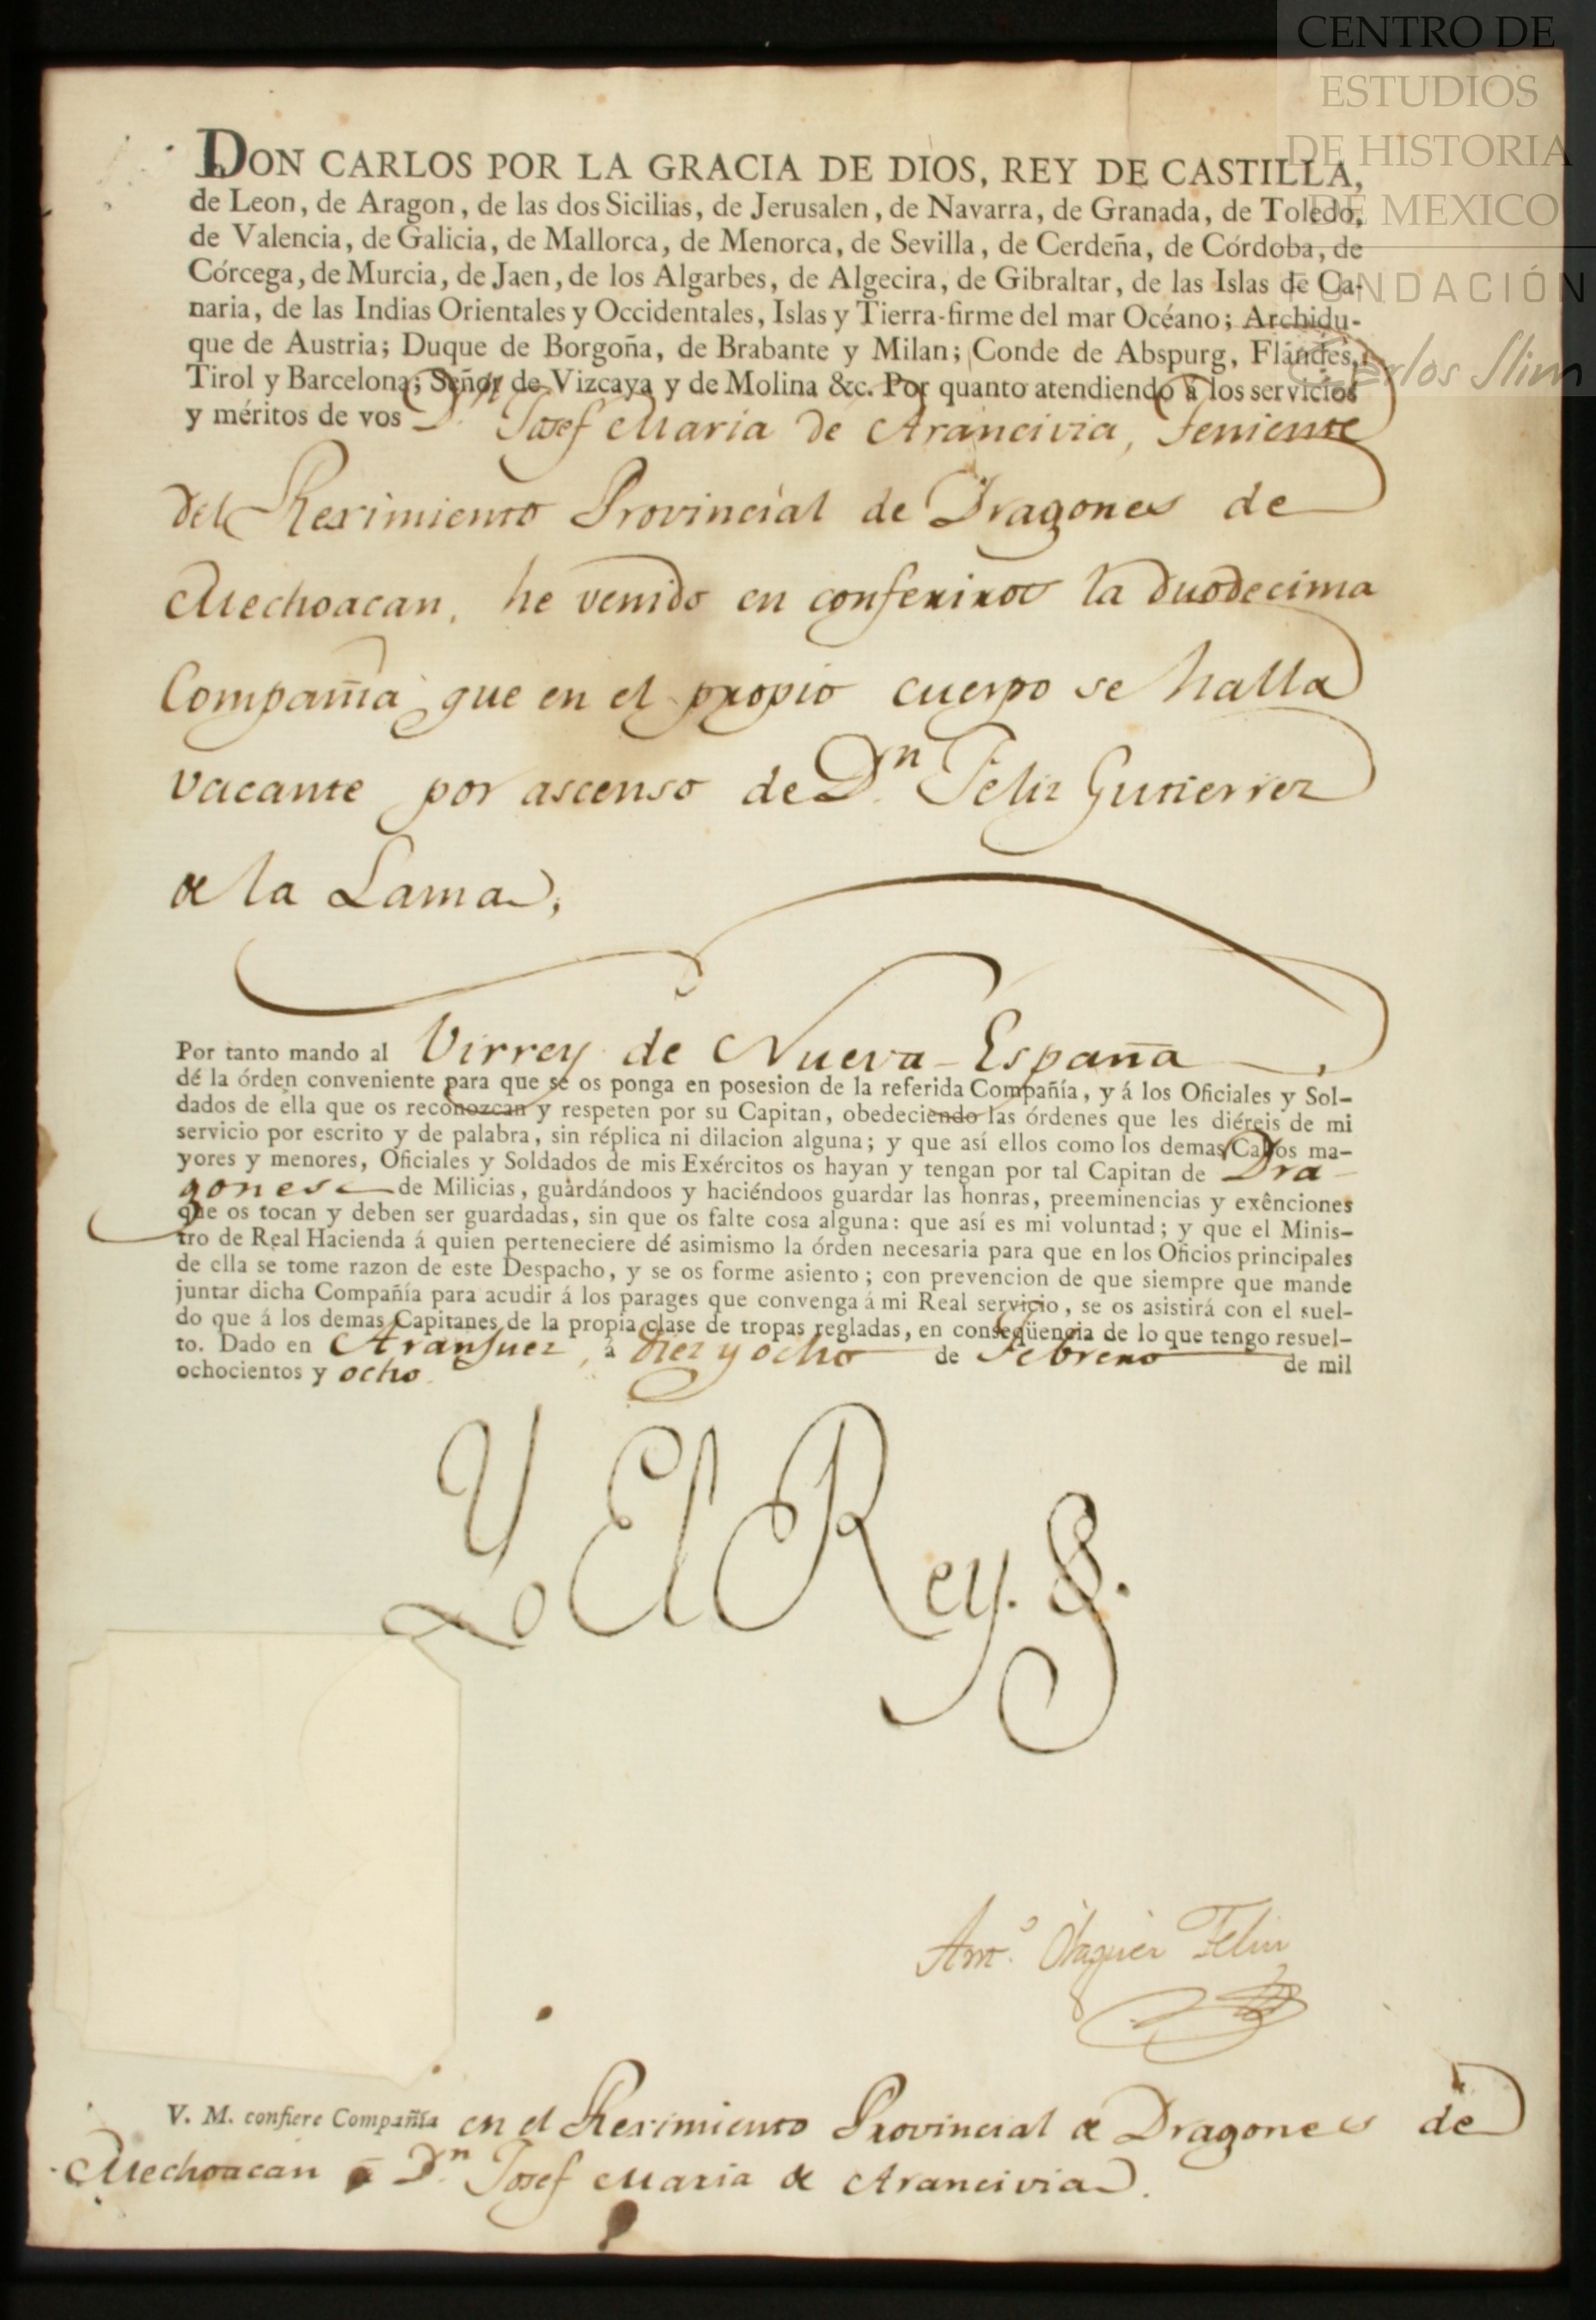 CENTRO DE
ESTUDIOS
DE HISTORIA
DE MEXICO
FUNDACIÓN
Carlos Slim
DON CARLOS POR LA GRACIA DE DIOS, REY DE CASTILLA,
de Leon, de Aragon, de las dos Sicilias, de Jerusalen, de Navarra, de Granada, de Toledo,
de Valencia, de Galicia, de Mallorca, de Menorca, de Sevilla, de Cerdeña, de Córdoba, de
Córcega, de Murcia, de Jaen, de los Algarbes, de Algecira, de Gibraltar, de las Islas de Ca-
naria, de las Indias Orientales y Occidentales, Islas y Tierra-firme del mar Océano; Archidu-
que de Austria; Duque de Borgoña, de Brabante y Milan; Conde de Abspurg, Flándes,
Tirol y Barcelona; Señor de Vizcaya y de Molina &c. Por quanto atendiendo á los servicios
y méritos de vos Dn. Josef Maria de Arancivia, Teniente
del Reximiento Provincial de Dragones de
Mechoacan, he venido en conferiros la duodecima
Compañia que en el propio cuerpo se halla
vacante por ascenso de Dn. Feliz Gutierrez
de la Lama;
Por tanto mando al Virrey de Nueva España
dé la órden conveniente para que se os ponga en posesion de la referida Compañía, y á los Oficiales y Sol-
dados de ella que os reconozcan y respeten por su Capitan, obedeciendo las órdenes que les diéreis de mi
servicio por escrito y de palabra, sin réplica ni dilacion alguna; y que así ellos como los demas Cabos ma-
yores y menores, Oficiales y Soldados de mis Exércitos os hayan y tengan por tal Capitan de Dra-
gones de Milicias, guardándoos y haciéndoos guardar las honras, preeminencias y exênciones
que os tocan y deben ser guardadas, sin que os falte cosa alguna: que así es mi voluntad; y que el Minis-
tro de Real Hacienda á quien perteneciere dé asimismo la órden necesaria para que en los Oficios principales
de ella se tome razon de este Despacho, y se os forme asiento; con prevencion de que siempre que mande
juntar dicha Compañía para acudir á los parages que convenga á mi Real servicio, se os asistirá con el suel-
do que á los demas Capitanes de la propia clase de tropas regladas, en conseqüencia de lo que tengo resuel-
to. Dado en Aranjuez, á diez y ocho de Febrero de mil
ochocientos y ocho.
Yo El Rey.
Anto. Olaguer Feliu
V. M. confiere Compañía en el Reximiento Provincial de Dragones de
Mechoacan á Dn. Josef Maria de Arancivia.